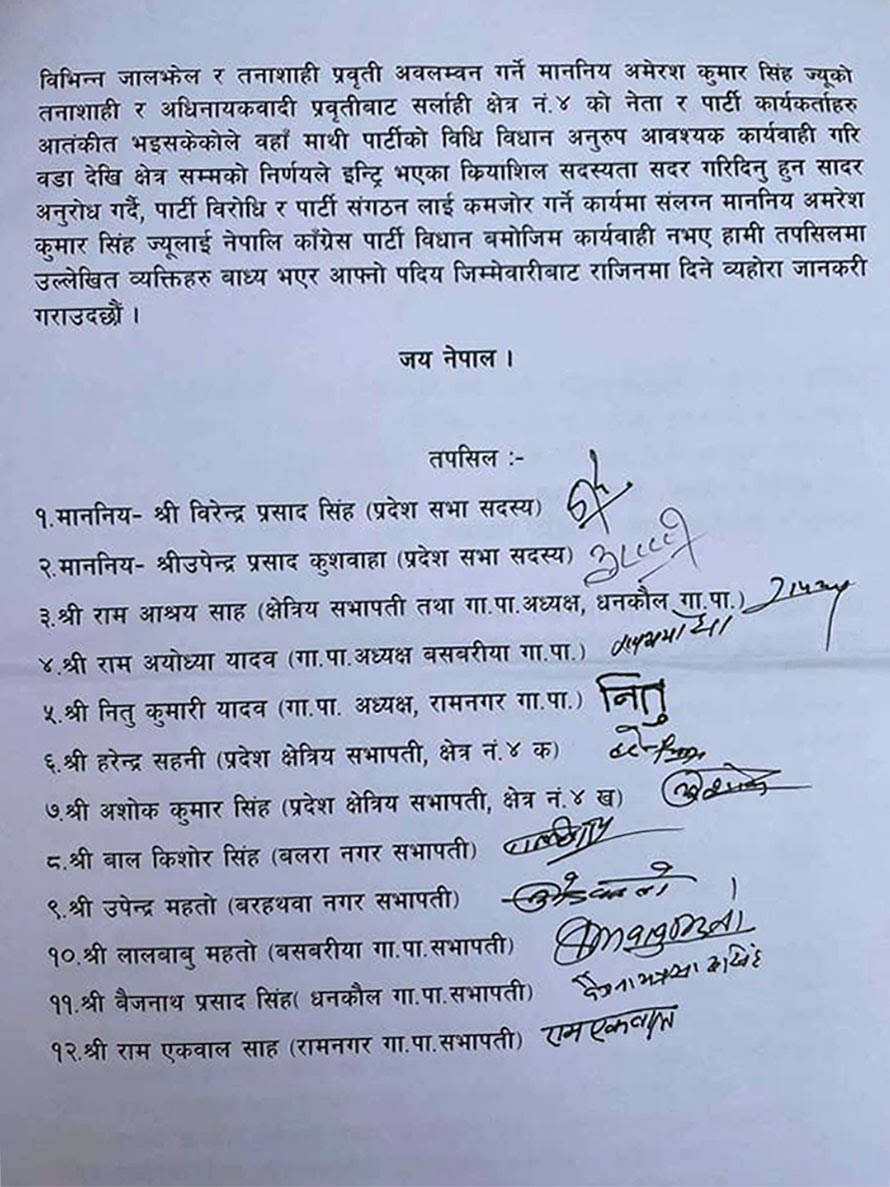 विभिन्न जालझेल र तनाशाही प्रवृती अवलम्वन गर्ने माननिय अमेरश कुमार सिंह ज्यूको
तनाशाही र अधिनायकवादी प्रवृतीबाट सर्लाही क्षेत्र नं.४ को नेता र पार्टी कार्यकर्ताहरु
आतंकीत भइसकेकोले वहाँ माथी पार्टीको विधि विधान अनुरुप आवश्यक कार्यवाही गरि
वडा देखि क्षेत्र सम्मको निर्णयले इन्ट्रि भएका क्रियाशिल सदस्यता सदर गरिदिनु हुन सादर
अनुरोध गर्दै, पार्टी विरोधि र पार्टी संगठन लाई कमजोर गर्ने कार्यमा संलग्न माननिय अमरेश
कुमार सिंह ज्यूलाई नेपालि काँग्रेस पार्टी विधान बमोजिम कार्यवाही नभए हामी तपसिलमा
उल्लेखित व्यक्तिहरु बाध्य भएर आफ्नो पदिय जिम्मेवारीबाट राजिनमा दिने व्यहोरा जानकरी
गराउदछौं ।
जय नेपाल ।
तपसिल :-
१.माननिय- श्री विरेन्द्र प्रसाद सिंह (प्रदेश सभा सदस्य)
२.माननिय- श्रीउपेन्द्र प्रसाद कुशवाहा (प्रदेश सभा सदस्य)
३.श्री राम आश्रय साह (क्षेत्रिय सभापती तथा गा.पा.अध्यक्ष, धनकौल गा.पा.)
४.श्री राम अयोध्या यादव (गा.पा.अध्यक्ष बसबरीया गा.पा.)
५.श्री नितु कुमारी यादव (गा.पा. अध्यक्ष, रामनगर गा.पा.) नितु
६.श्री हरेन्द्र सहनी (प्रदेश क्षेत्रिय सभापती, क्षेत्र नं.४ क)
७.श्री अशोक कुमार सिंह (प्रदेश क्षेत्रिय सभापती, क्षेत्र नं.४ ख)
८.श्री बाल किशोर सिंह (बलरा नगर सभापती)
९.श्री उपेन्द्र महतो (बरहथवा नगर सभापती)
१०.श्री लालबाबु महतो (बसबरीया गा.पा.सभापती)
११.श्री बैजनाथ प्रसाद सिंह( धनकौल गा.पा.सभापती)
१२.श्री राम एकवाल साह (रामनगर गा.पा.सभापती) राम एकवाल